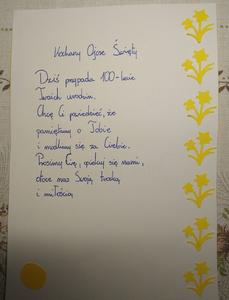 Kochany Ojcze Święty
Dziś przypada 100-lecie
Twoich urodzin.
Chcę Ci powiedzieć, że
pamiętamy o Tobie
i modlimy się za Ciebie.
Prosimy Cię, opiekuj się nami,
otocz nas Swoją troską
i miłością